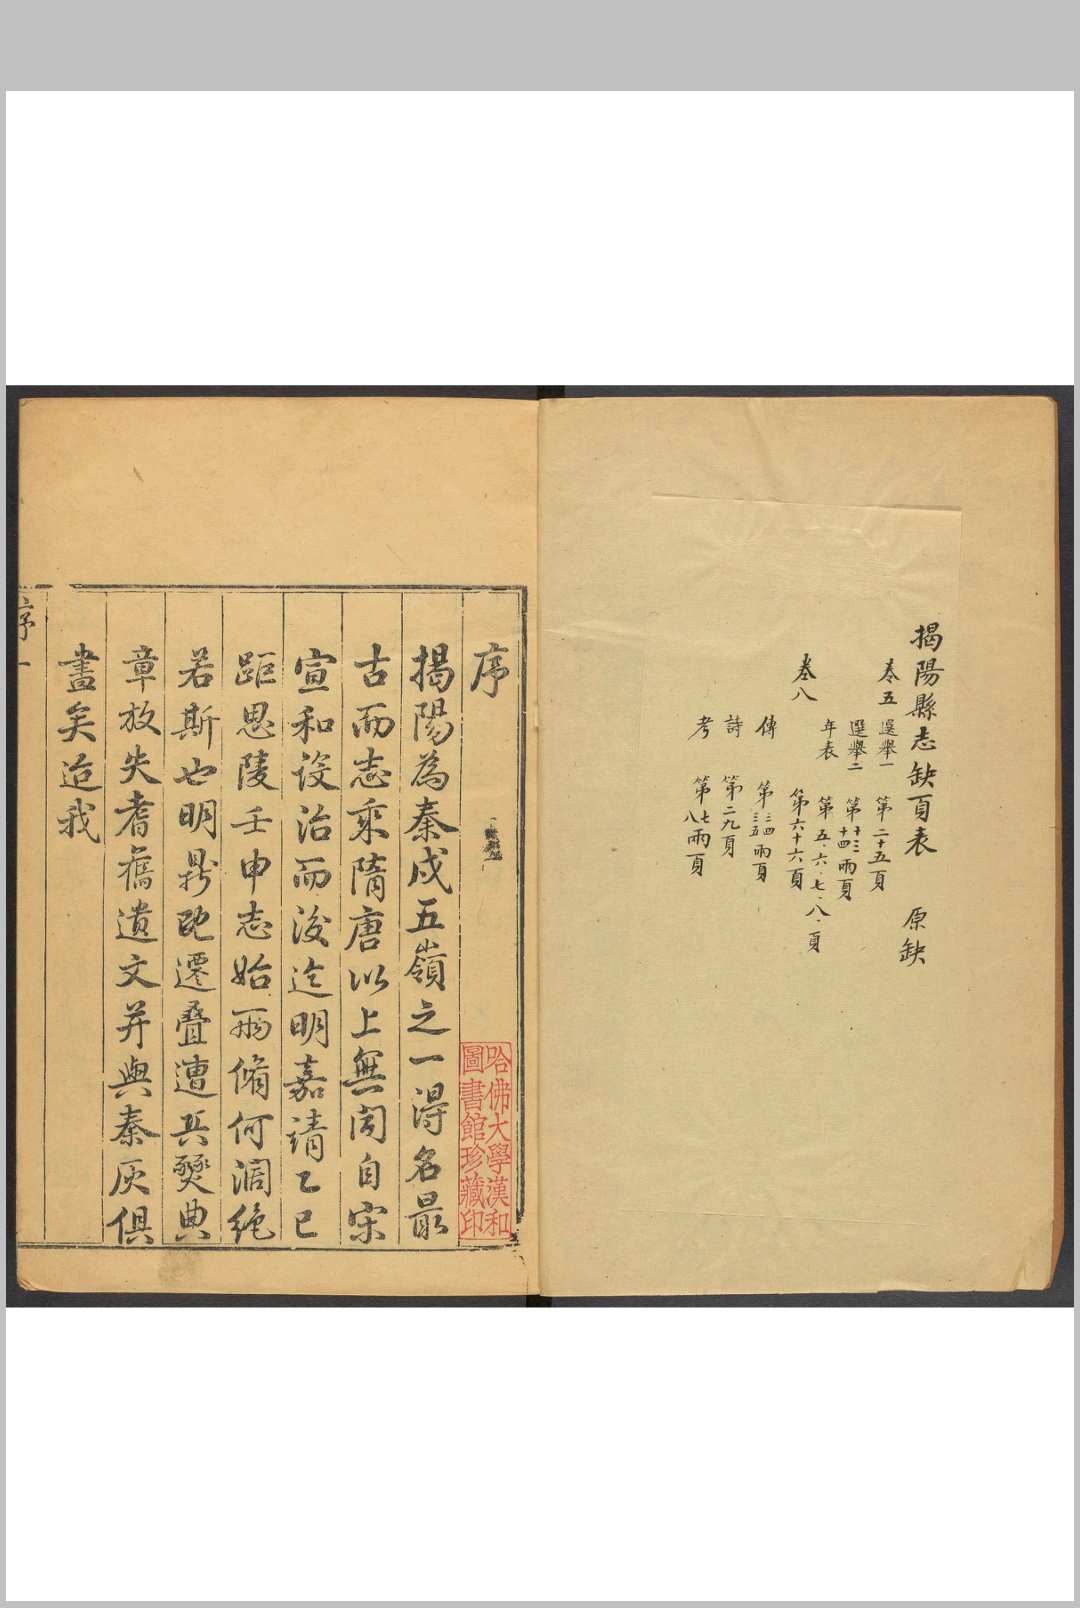 揭陽縣志缺頁表 原缺
卷五 選舉一 第二十五頁
選舉二 第十三十四兩頁
年表 第五.六.七.八.頁
卷八 第六十六頁
傳 第三四三五兩頁
詩 第二九頁
考 第七八兩頁
序
揭陽為秦戍五嶺之一得名最
古而志乘隋唐以上無聞自宋
宣和設治而後迄明嘉靖乙巳
距思陵壬申志始兩脩何濶絶
若斯也明鼎既遷疊遭兵燹典
章放失耆舊遺文并與秦灰俱
盡矣迨我
序一
哈佛大學漢和
圖書館珍藏印